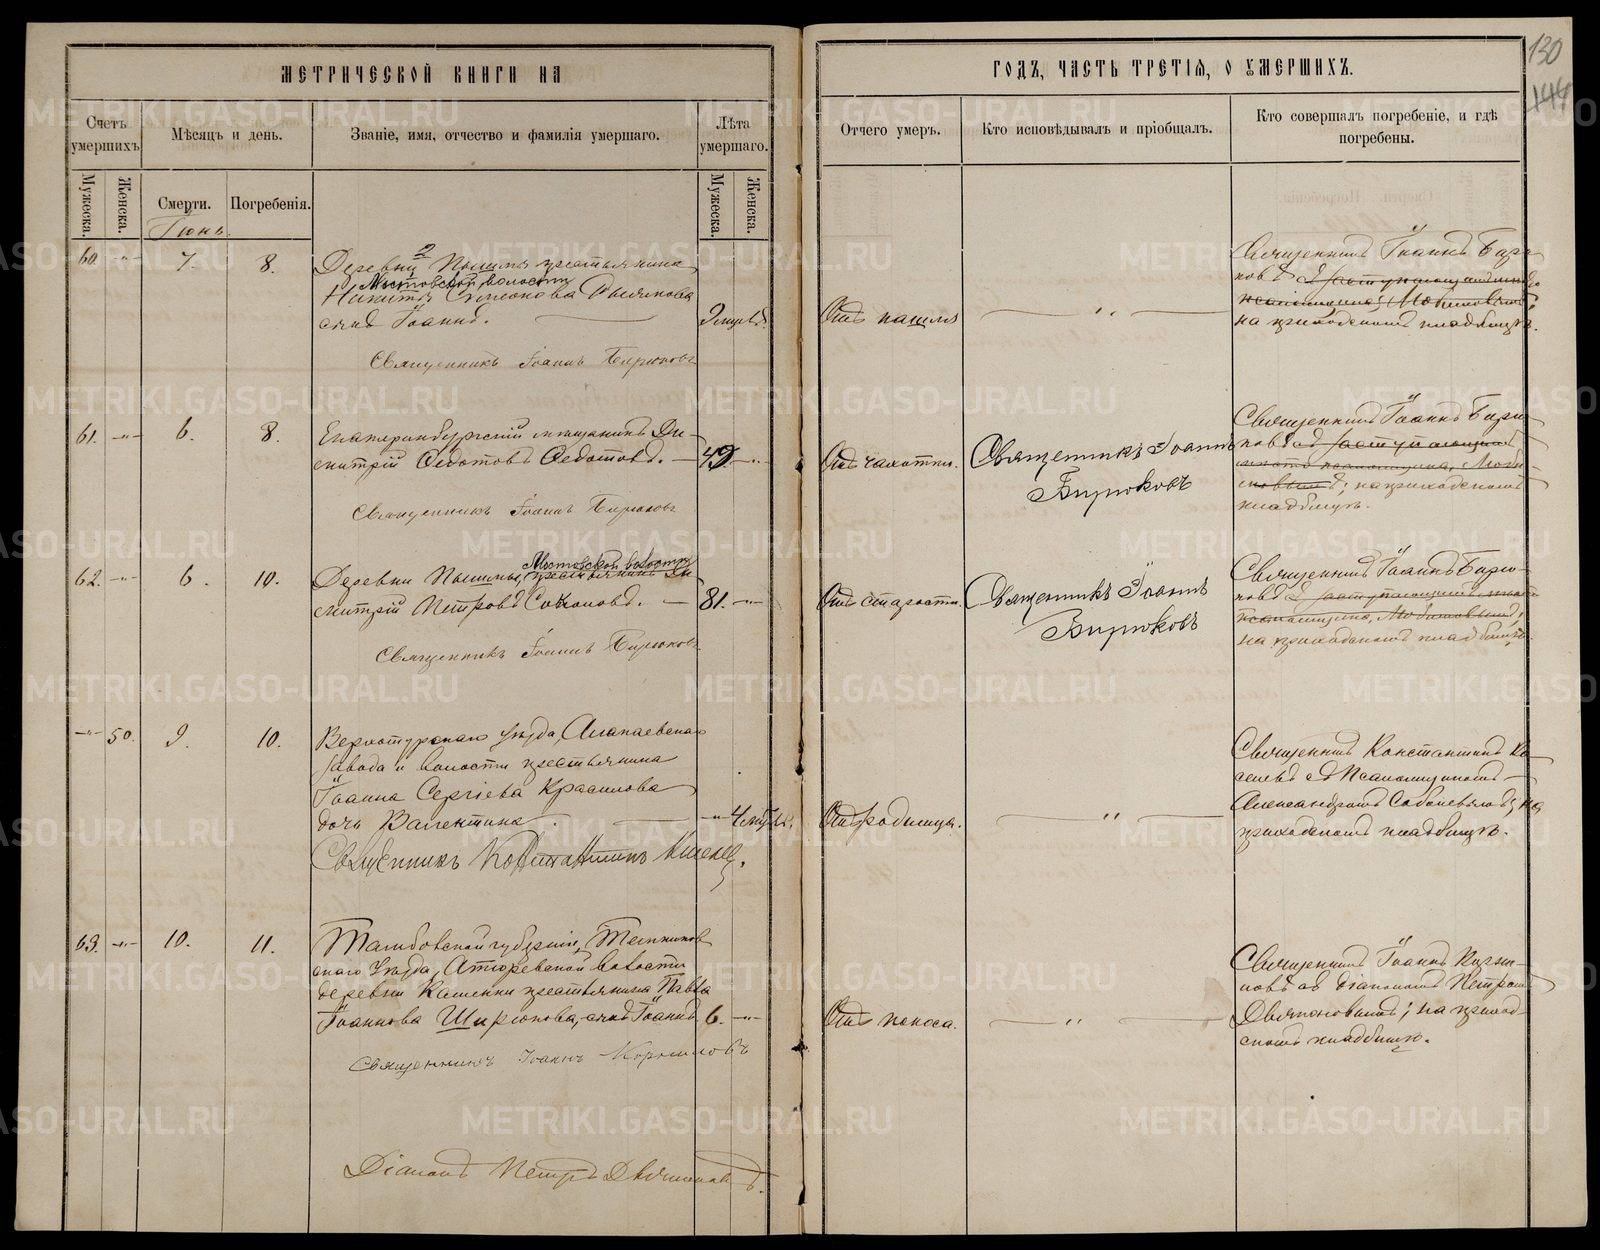 МЕТРИЧЕСКОЙ КНИГИ НА
ГОДЪ, ЧАСТЬ ТРЕТІЯ, О УМЕРШИХЪ.
130
144
Счетъ умершихъ
Мѣсяцъ и день.
Званіе, имя, отчество и фамилія умершаго.
Лѣта умершаго.
Отчего умеръ.
Кто исповѣдывалъ и пріобщалъ.
Кто совершалъ погребеніе, и гдѣ погребены.
Мужеска.
Женска.
Смерти.
Погребенія.
Мужеска.
Женска.
Іюнь.
60. -"- 7. 8.
Деревни Пышмы крестьянина
Мостовской волости
Никиты Симеонова
сынъ Іоаннъ.
Священникъ Іоаннъ Бирюковъ
Отъ кашля
Священникъ Іоаннъ Бирю-
ковъ
на приходскомъ кладбищѣ.
61. -"- 6. 8.
Екатеринбургскій мѣщанинъ Ди-
митрій Федотовъ Федотовъ. 49. -"-
Священникъ Іоаннъ Бирюковъ
Отъ чахотки.
Священникъ Іоаннъ
Бирюковъ
Священникъ Іоаннъ Бирю-
ковъ
на приходскомъ
кладбищѣ.
62. -"- 6. 10.
Мостовской волости
Деревни Пышмы, крестьянинъ Ди-
митрій Петровъ Соколовъ. 81. -"-
Священникъ Іоаннъ Бирюковъ
Отъ старости.
Священникъ Іоаннъ
Бирюковъ
Священникъ Іоаннъ Бирю-
ковъ
на приходскомъ кладбищѣ
-"- 50. 9. 10.
Верхотурскаго уѣзда, Алапаевскаго
завода и волости крестьянина
Іоанна Сергіева Красилова
дочь Валентина. -"- 4 мѣс.
Священникъ Константинъ
Отъ родимца.
Священникъ Константинъ
съ Псаломщикомъ
Александромъ Соболевымъ; на
приходскомъ кладбищѣ.
63. -"- 10. 11.
Тамбовской губерніи, Темников-
скаго уѣзда, Атюревской волости
деревни Каменки крестьянина Павла
Іоаннова Ширюкова, сынъ Іоаннъ 6. -"-
Священникъ Іоаннъ
Отъ поноса.
Священникъ Іоаннъ
съ діакономъ Петромъ
на приход-
скомъ кладбищѣ.
Діаконъ Петръ
METRIKI.GASO-URAL.RU